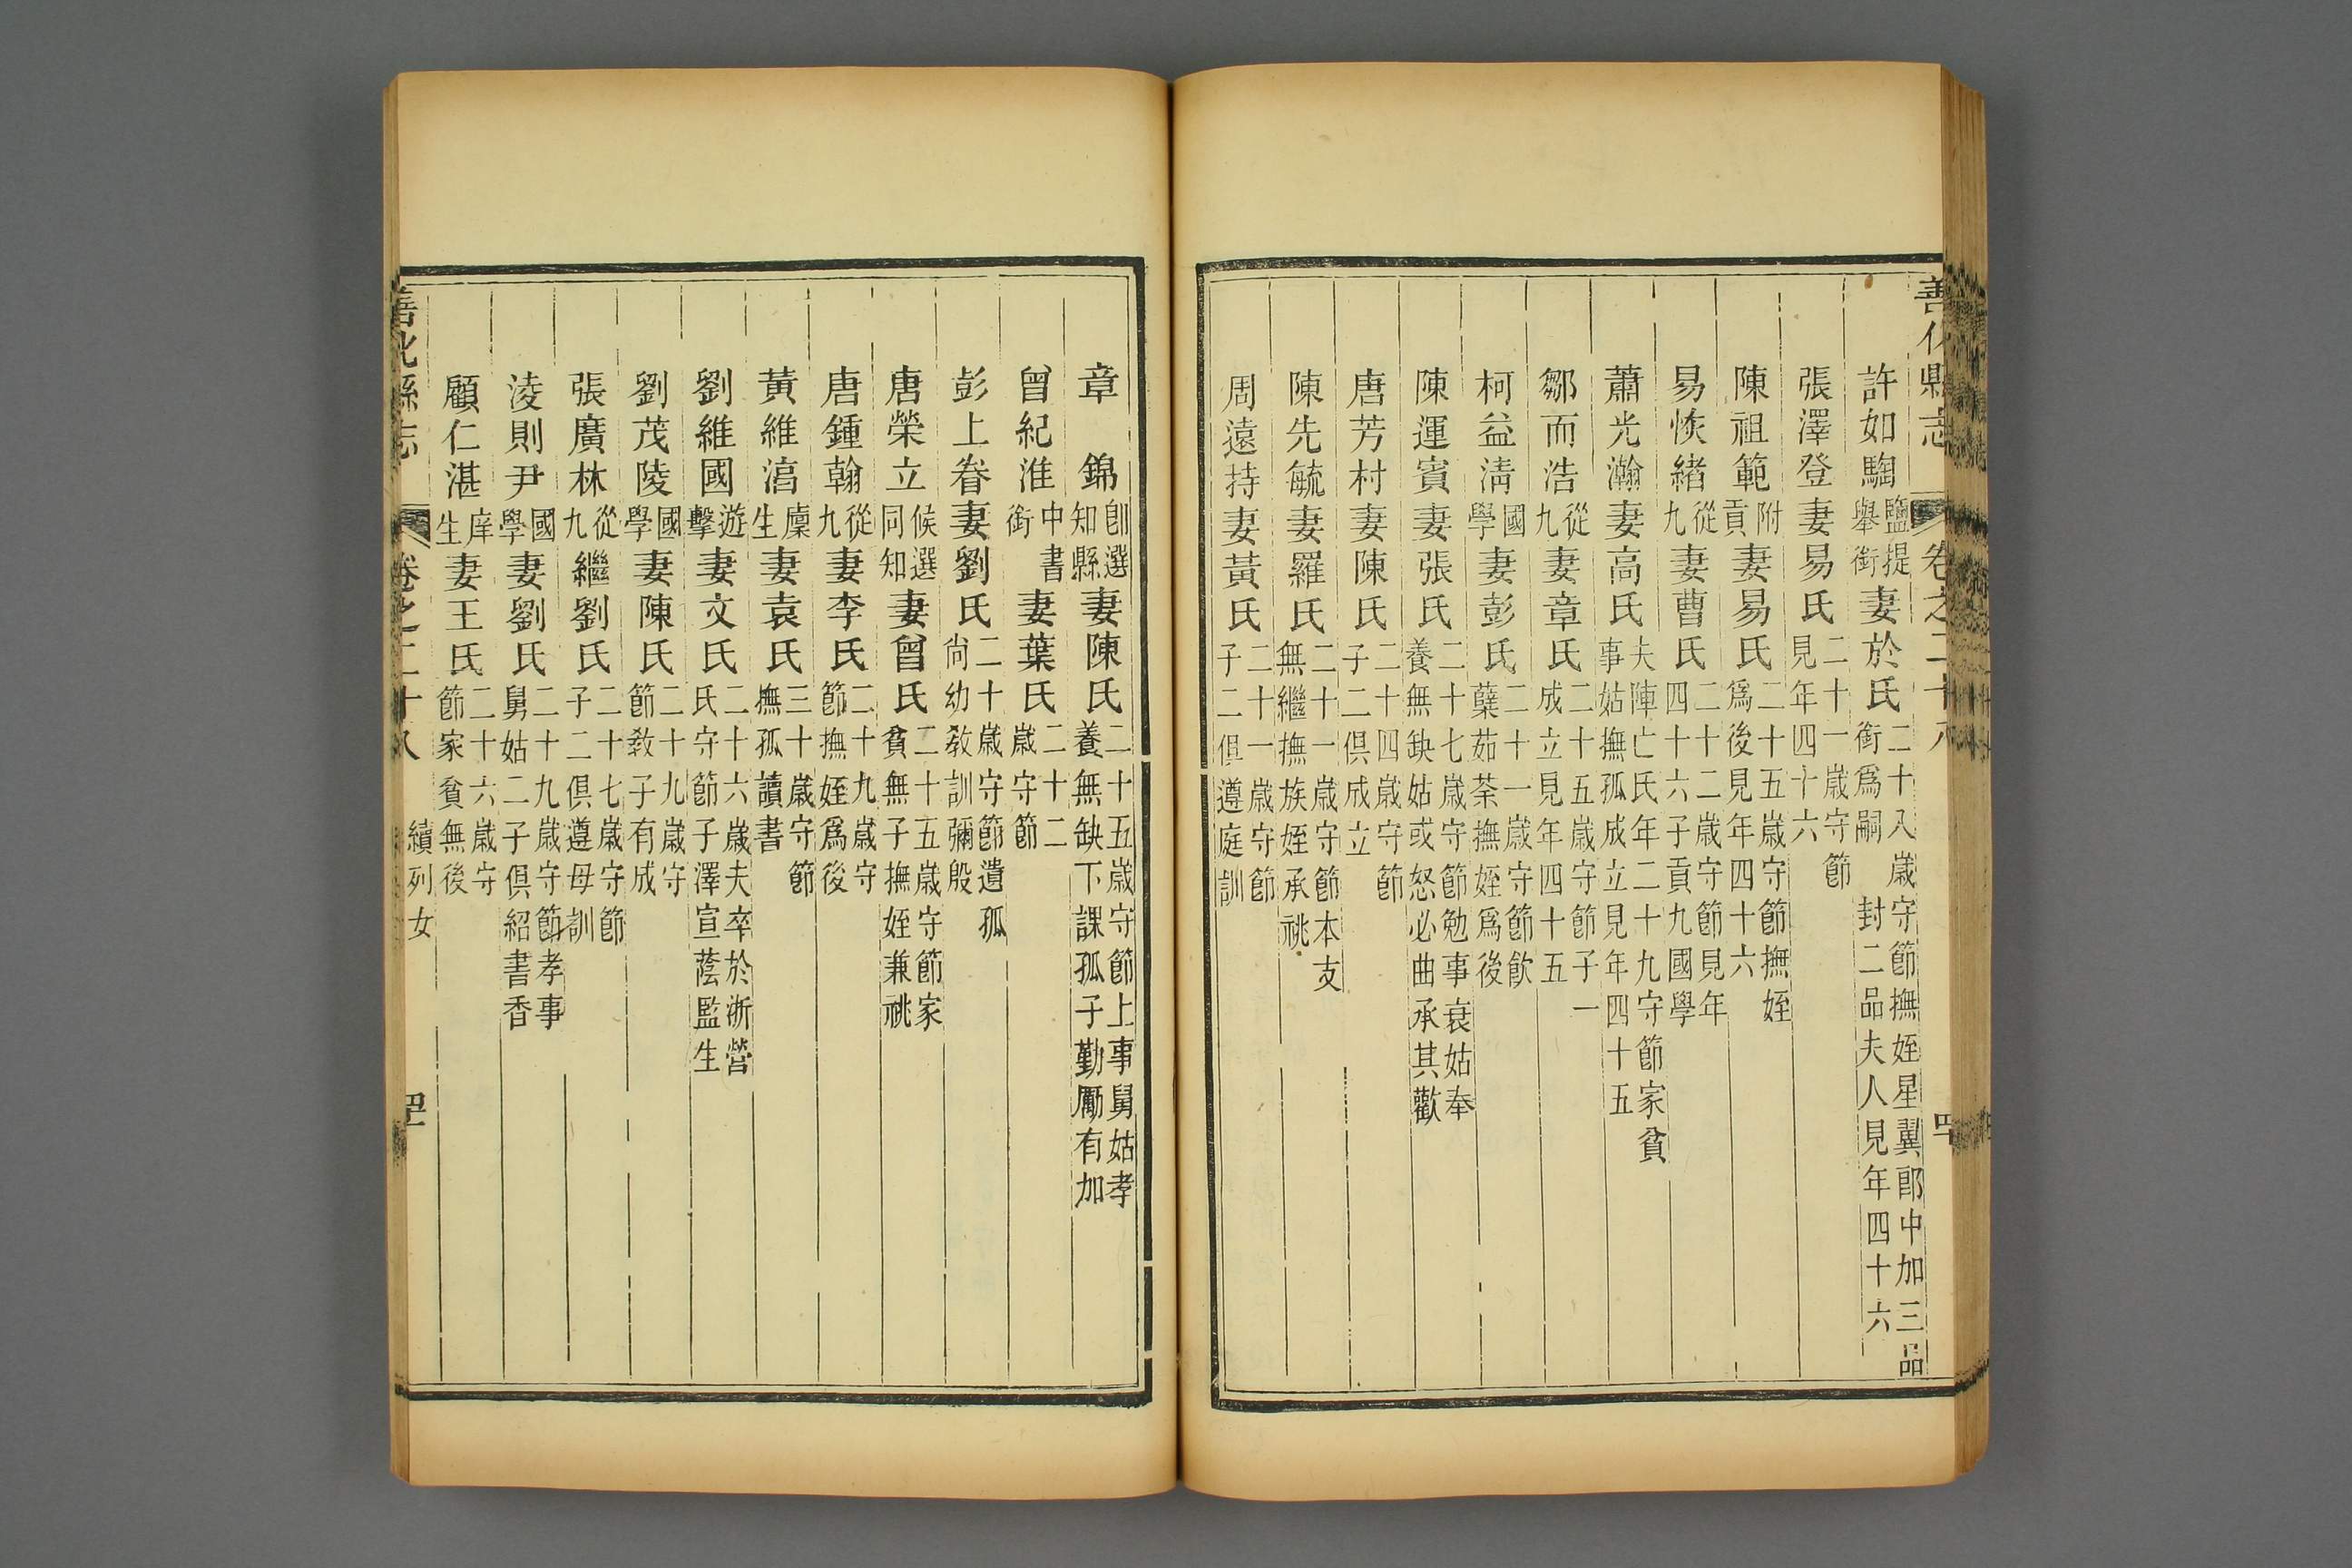 善化縣志 卷之二十八
許如騊鹽提舉銜妻於氏二十八歲守節撫姪星翼郎中加三品銜爲嗣 封二品夫人見年四十六
張澤登妻易氏二十一歲守節見年四十六
陳祖範附貢妻易氏二十五歲守節撫姪爲後見年四十六
易恢緒從九妻曹氏二十二歲守節見年四十六子貢九國學
蕭光瀚妻高氏夫陣亡氏年二十九守節家貧事姑撫孤成立見年四十五
鄒而浩從九妻章氏二十五歲守節子一成立見年四十五
柯益淸國學妻彭氏二十一歲守節飮蘗茹荼撫姪爲後
陳運賓妻張氏二十七歲守節勉事衰姑奉養無缺姑或怒必曲承其歡
唐芳村妻陳氏二十四歲守節子二俱成立
陳先毓妻羅氏二十一歲守節本支無繼撫族姪承祧
周遠持妻黃氏二十一歲守節子二俱遵庭訓
章 錦卽選知縣妻陳氏二十五歲守節上事舅姑孝養無缺下課孤子勤勵有加
曾紀淮中書銜妻葉氏二十二歲守節
彭上眷妻劉氏二十歲守節遺孤尙幼敎訓彌殷
唐榮立候選同知妻曾氏二十五歲守節家貧無子撫姪兼祧
唐鍾翰從九妻李氏二十九歲守節撫姪爲後
黃維㵂廩生妻袁氏三十歲守節撫孤讀書
劉維國遊擊妻文氏二十六歲夫卒於浙營氏守節子澤宣蔭監生
劉茂陵國學妻陳氏二十九歲守節敎子有成
張廣林從九繼劉氏二十七歲守節子二俱遵母訓
淩則尹國學妻劉氏二十九歲守節孝事舅姑二子俱紹書香
顧仁湛庠生妻王氏二十六歲守節家貧無後
善化縣志 卷之二十八 續列女